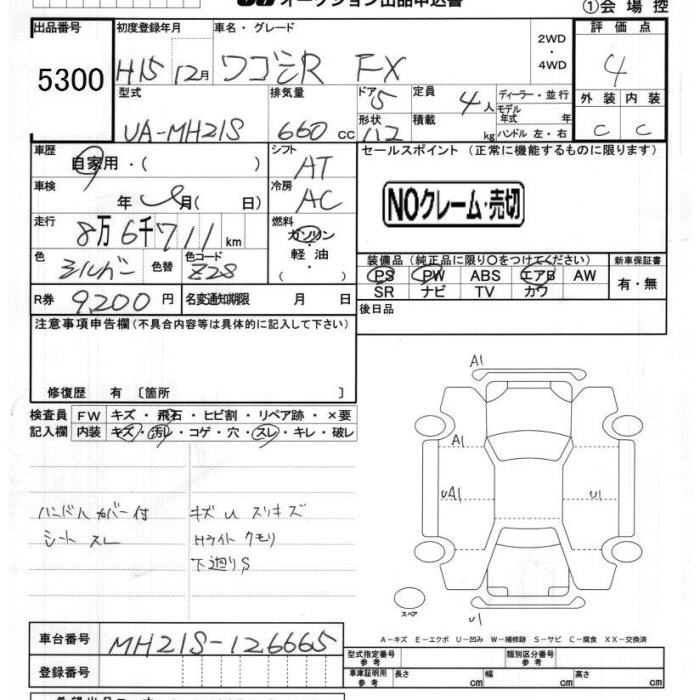 オークション出品申込書
①会場控
出品番号 初度登録年月 車名・グレード 評価点
5300 H15 12月 ワゴンR FX 2WD・4WD 4
型式 排気量 ドア 定員 ディーラー・並行 外装 内装
UA-MH21S 660 cc 5 4人 モデル年式 年 C C
形状 112 積載 kg ハンドル 左・右
車歴 自家用・( ) シフト AT セールスポイント (正常に機能するものに限ります)
車検 年 月(日) 冷房 AC NOクレーム・売切
走行 8万6千711km 燃料 ガソリン・軽油・( )
色 シルバー 色替 色コード Z2S 装備品(純正品に限り○をつけてください) 新車保証書
PS PW ABS エアB AW 有・無
SR ナビ TV カワ
R券 9,200円 名変通知期限 月 日 後日品
注意事項申告欄(不具合内容等は具体的に記入して下さい)
修復歴 有 〔箇所 〕
検査員 FW キズ・飛石・ヒビ割・リペア跡・×要
記入欄 内装 キズ・汚レ・コゲ・穴・スレ・キレ・破レ
A1
A1
UA1 U1
ハンドルカバー付 キズ U スリキズ
シート スレ Hライト クモリ
下廻りS
スペア
U1
A-キズ E-エクボ U-凹み W-補修跡 S-サビ C-腐食 XX-交換済
車台番号 MH21S-126665 型式指定番号 参考 類別区分番号 参考
登録番号 車庫証明用 参考 長さ cm 幅 cm 高さ cm